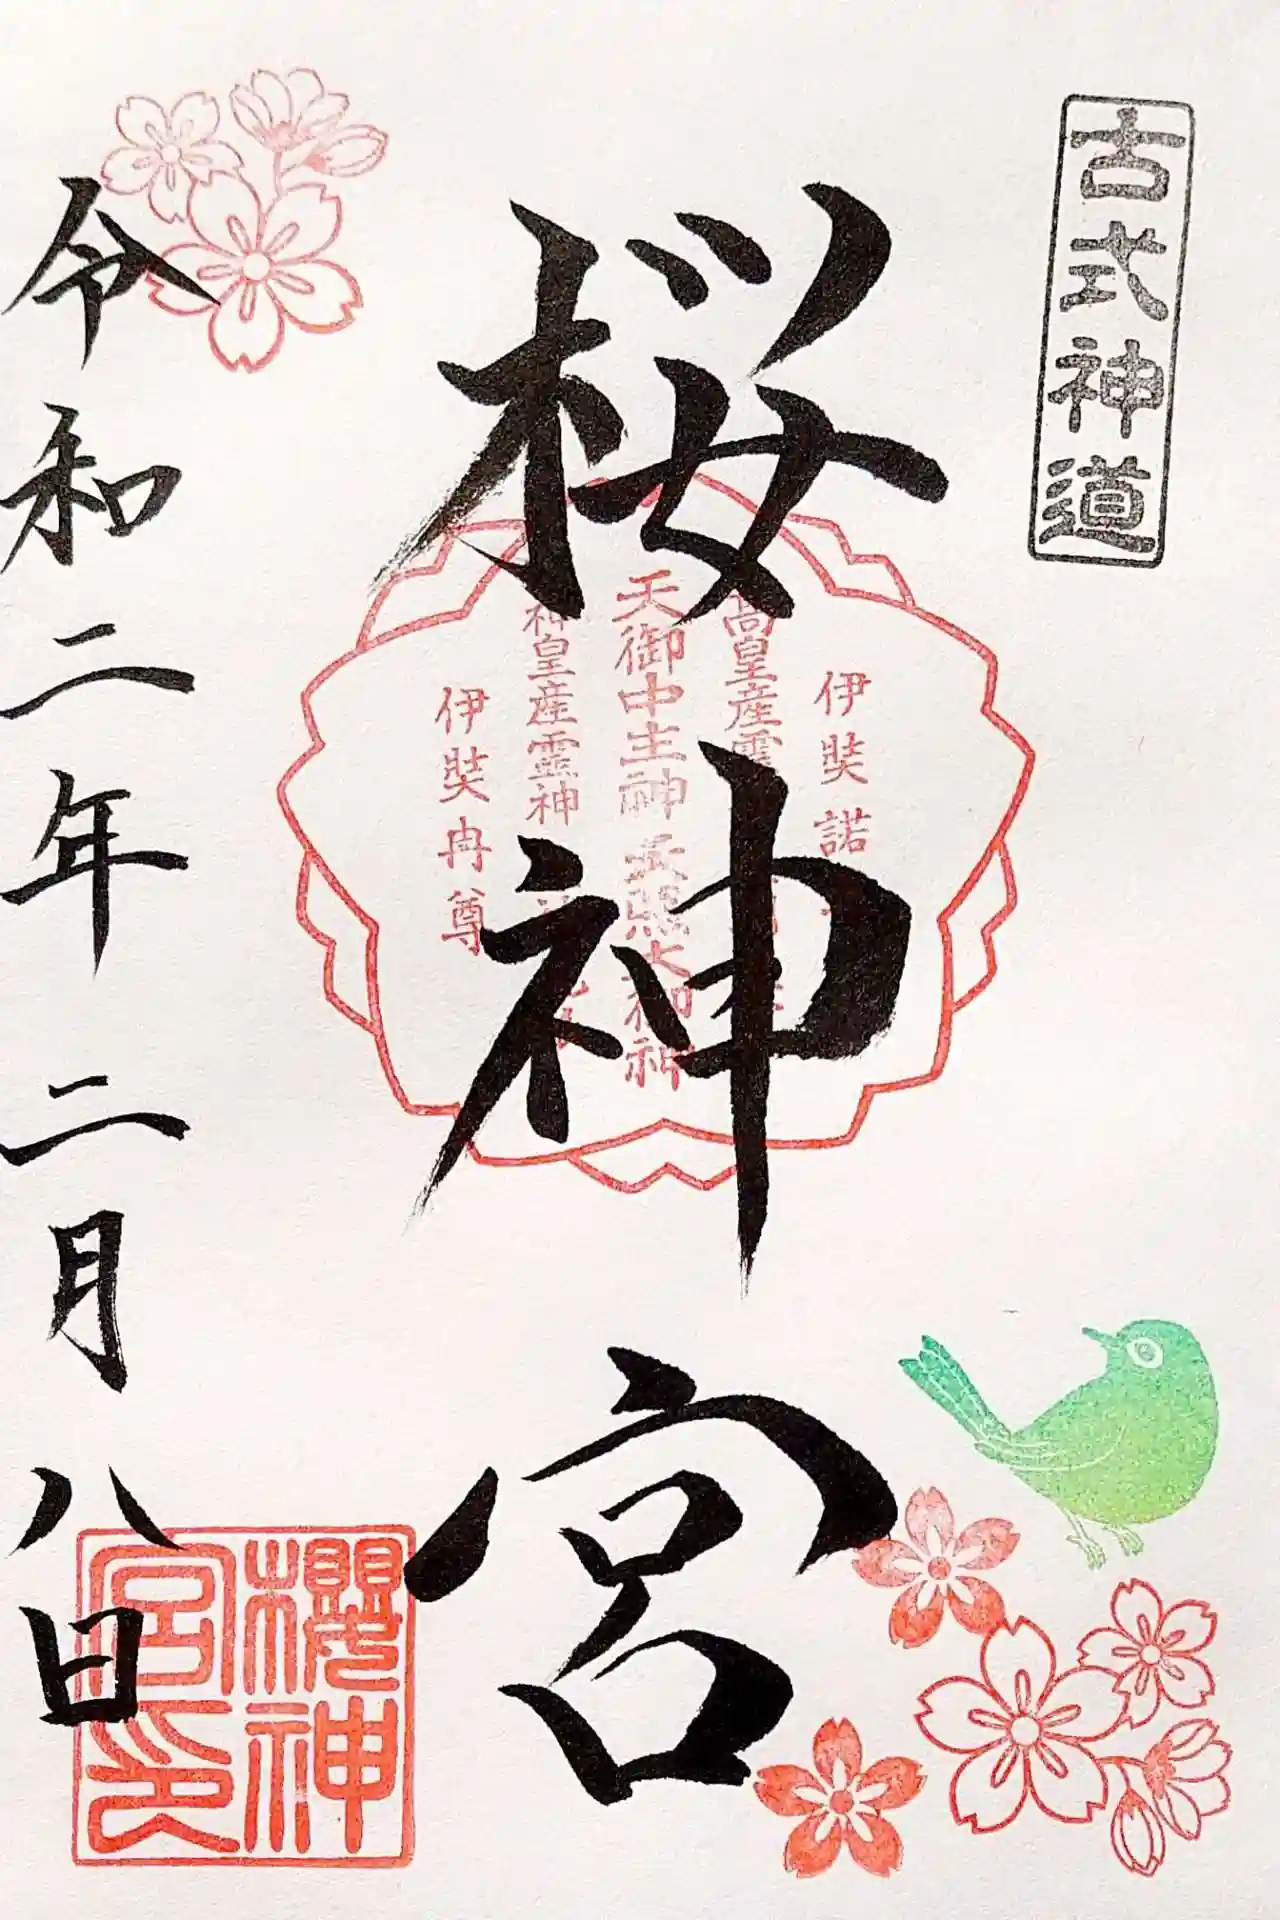 古式神道
桜神宮
伊弉諾
高皇産霊
天御中主神 天照大御神
神皇産霊神
伊弉冉尊
令和二年二月八日
櫻神宮印